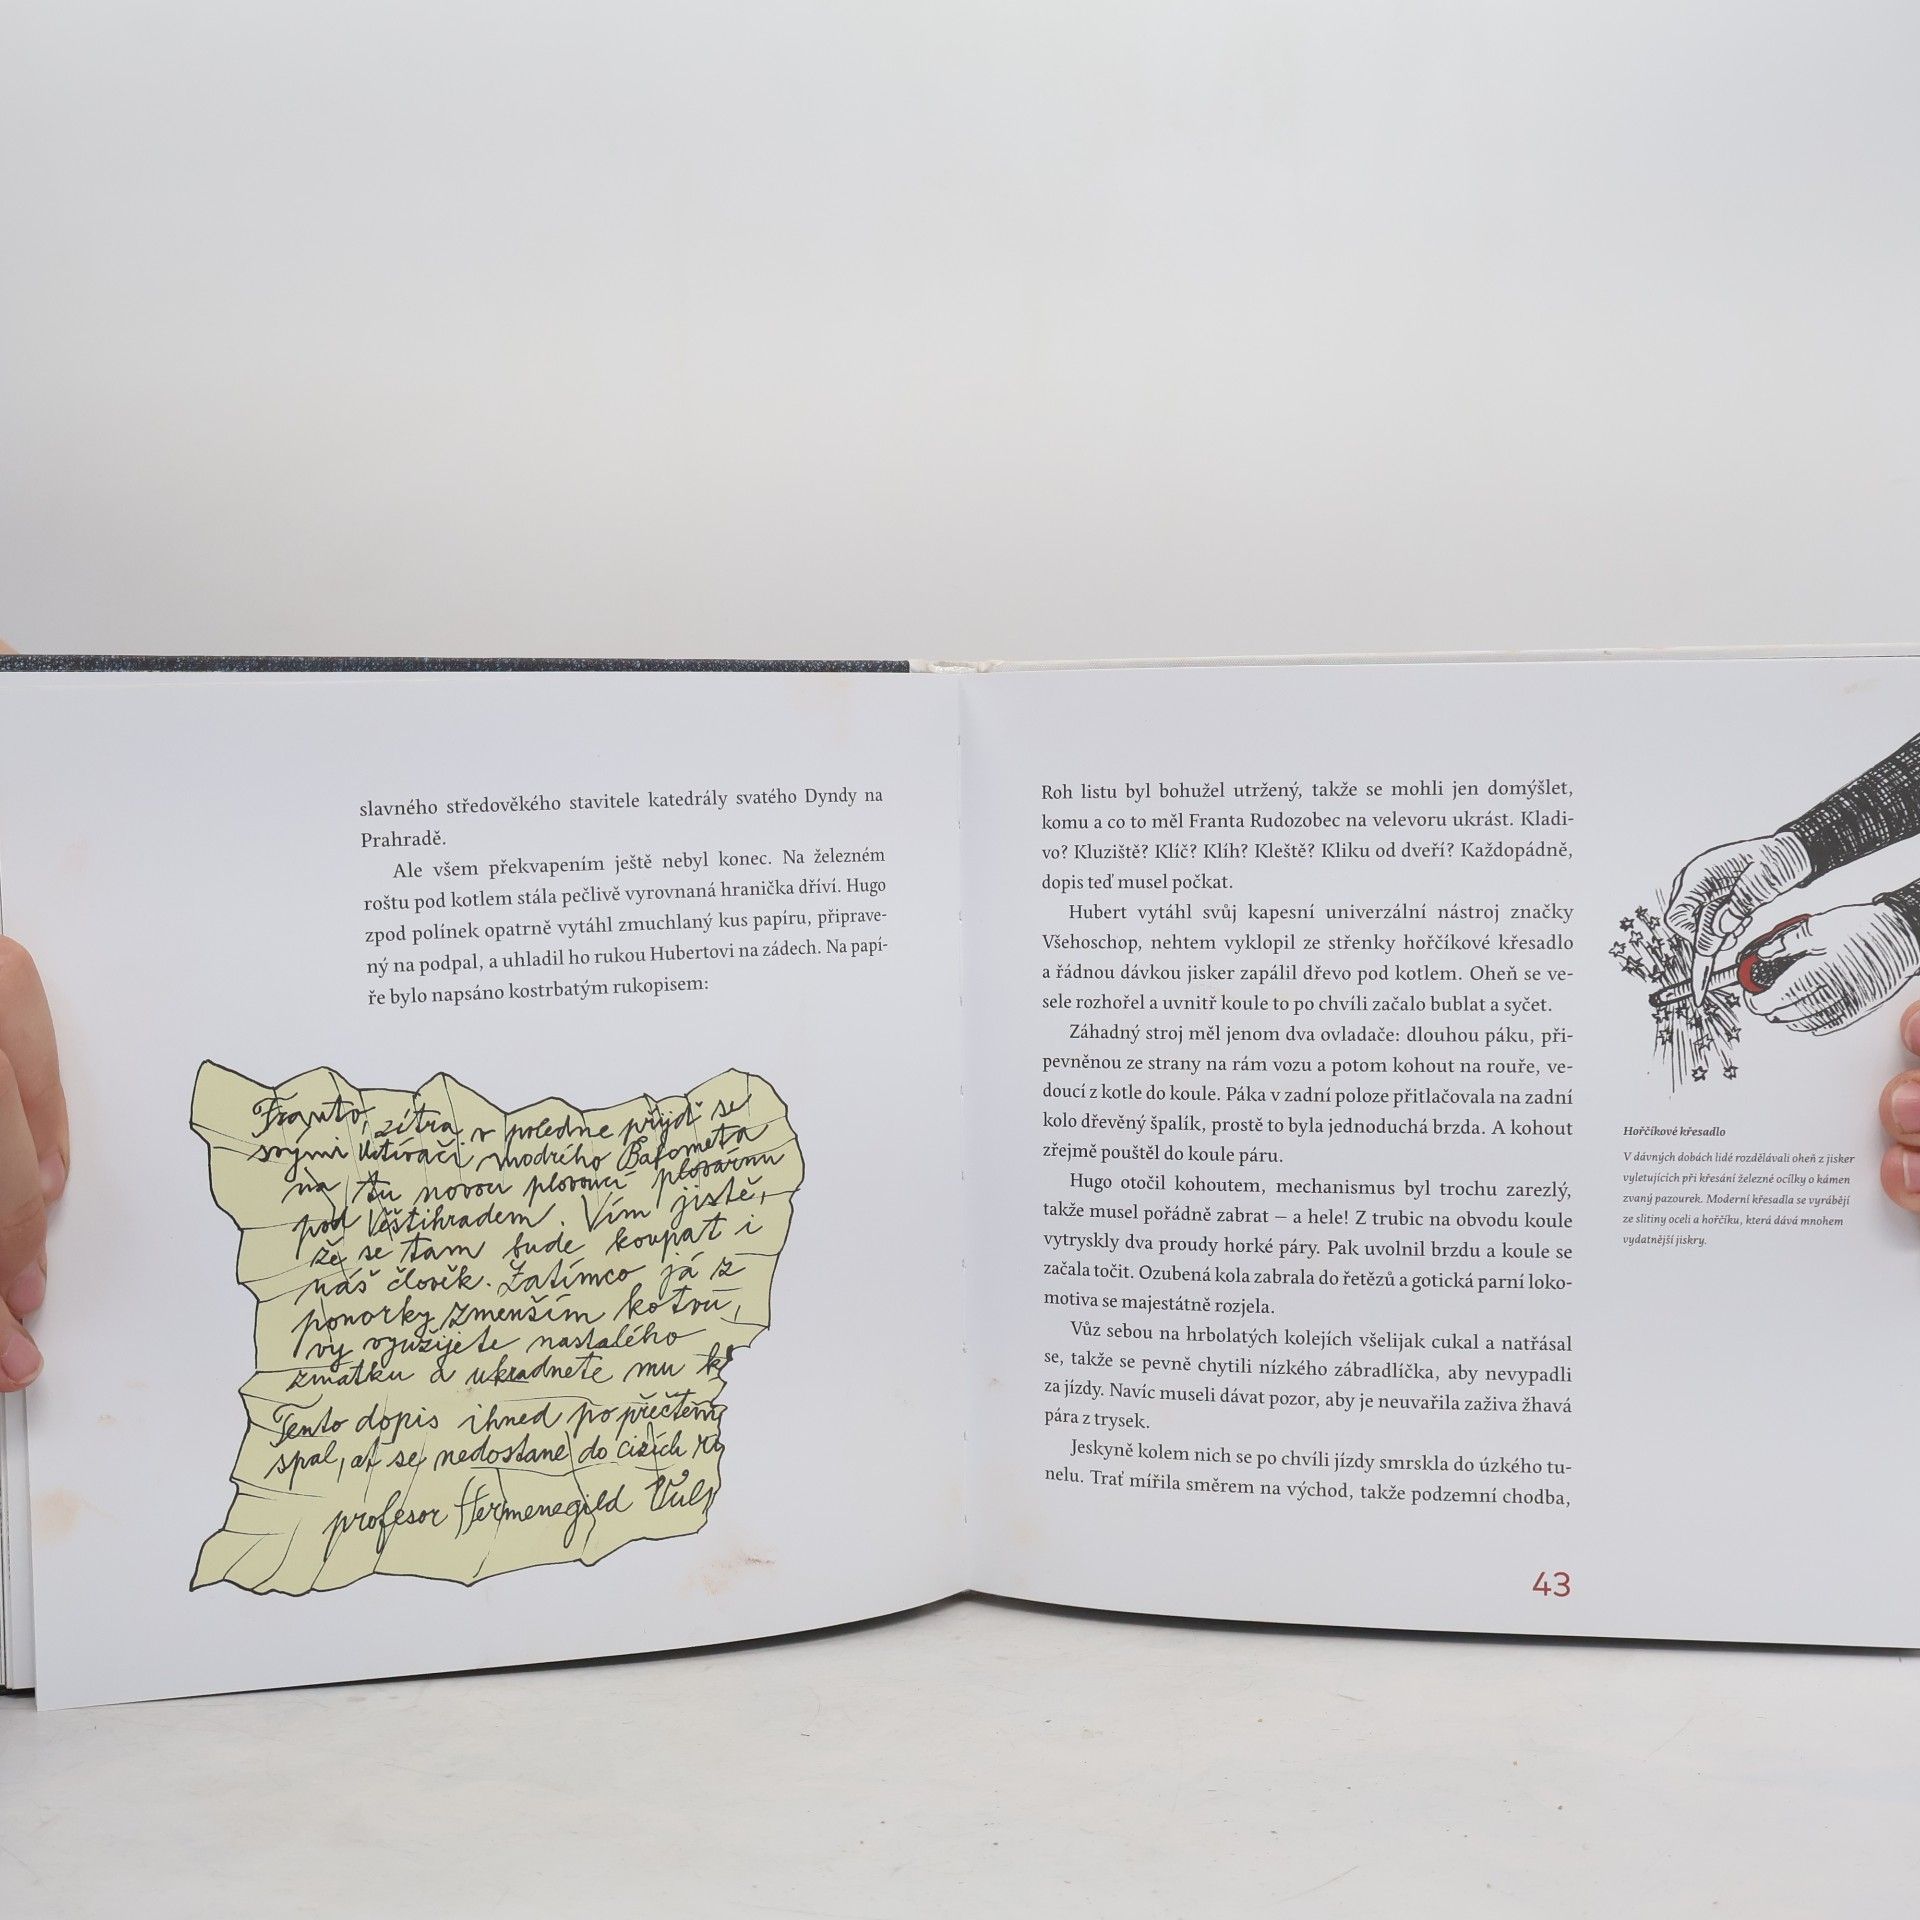 slavného středověkého stavitele katedrály svatého Dyndy na
Prahradě.
Ale všem překvapením ještě nebyl konec. Na železném
roštu pod kotlem stála pečlivě vyrovnaná hranička dříví. Hugo
zpod polínek opatrně vytáhl zmuchlaný kus papíru, připrave-
ný na podpal, a uhladil ho rukou Hubertovi na zádech. Na papí-
ře bylo napsáno kostrbatým rukopisem:
Franto, zítra v poledne přijď se
svými Uctívači modrého Bafometa
na tu novou plovoucí plovárnu
pod Věštihradem. Vím jistě,
že se tam bude koupat i
náš člověk. Zatímco já z
ponorky zmenším kotvu,
vy využijete nastalého
zmatku a ukradnete mu kl
Tento dopis ihned po přečtení
spal, ať se nedostane do cizích ru
profesor Hermenegild Vulp
Roh listu byl bohužel utržený, takže se mohli jen domýšlet,
komu a co to měl Franta Rudozobec na velevoru ukrást. Kladi-
vo? Kluziště? Klíč? Klíh? Kleště? Kliku od dveří? Každopádně,
dopis teď musel počkat.
Hubert vytáhl svůj kapesní univerzální nástroj značky
Všehoschop, nehtem vyklopil ze střenky hořčíkové křesadlo
a řádnou dávkou jisker zapálil dřevo pod kotlem. Oheň se ve-
sele rozhořel a uvnitř koule to po chvíli začalo bublat a syčet.
Záhadný stroj měl jenom dva ovladače: dlouhou páku, při-
pevněnou ze strany na rám vozu a potom kohout na rouře, ve-
doucí z kotle do koule. Páka v zadní poloze přitlačovala na zadní
kolo dřevěný špalík, prostě to byla jednoduchá brzda. A kohout
zřejmě pouštěl do koule páru.
Hugo otočil kohoutem, mechanismus byl trochu zarezlý,
takže musel pořádně zabrat – a hele! Z trubic na obvodu koule
vytryskly dva proudy horké páry. Pak uvolnil brzdu a koule se
začala točit. Ozubená kola zabrala do řetězů a gotická parní loko-
motiva se majestátně rozjela.
Vůz sebou na hrbolatých kolejích všelijak cukal a natřásal
se, takže se pevně chytili nízkého zábradlíčka, aby nevypadli
za jízdy. Navíc museli dávat pozor, aby je neuvařila zaživa žhavá
pára z trysek.
Jeskyně kolem nich se po chvíli jízdy smrskla do úzkého tu-
nelu. Trať mířila směrem na východ, takže podzemní chodba,
43
Hořčíkové křesadlo
V dávných dobách lidé rozdělávali oheň z jisker
vyletujících při křesání železné ocílky o kámen
zvaný pazourek. Moderní křesadla se vyrábějí
ze slitiny oceli a hořčíku, která dává mnohem
vydatnější jiskry.